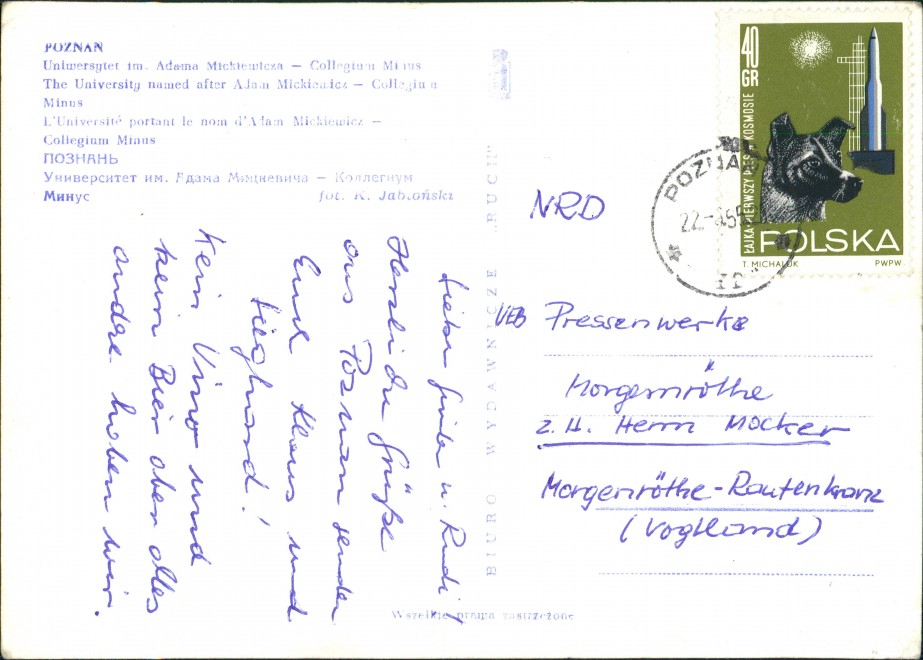 POZNAŃ
Uniwersytet im. Adama Mickiewicza — Collegium Minus
The University named after Adam Mickiewicz — Collegium
Minus
L'Université portant le nom d'Adam Mickiewicz —
Collegium Minus
ПОЗНАНЬ
Университет им. Адама Мицкевича — Коллегиум
Минус
fot. K. Jabłoński
Liebe u. Rudi!
Herzliche Grüße
aus Poznan senden
Euch Klaus und
Kein Vino und
kein Bier aber alles
andre haben wir.
BIURO WYDAWNICZE „RUCH"
Wszelkie prawa zastrzeżone
40
GR
ŁAJKA-PIERWSZY PIES W KOSMOSIE
POLSKA
T. MICHALUK
PWPW
POZNAŃ
22.
NRD
VEB Pressenwerke
Morgenröthe
z. H. Herrn Mocker
Morgenröthe-Rautenkranz
(Vogtland)